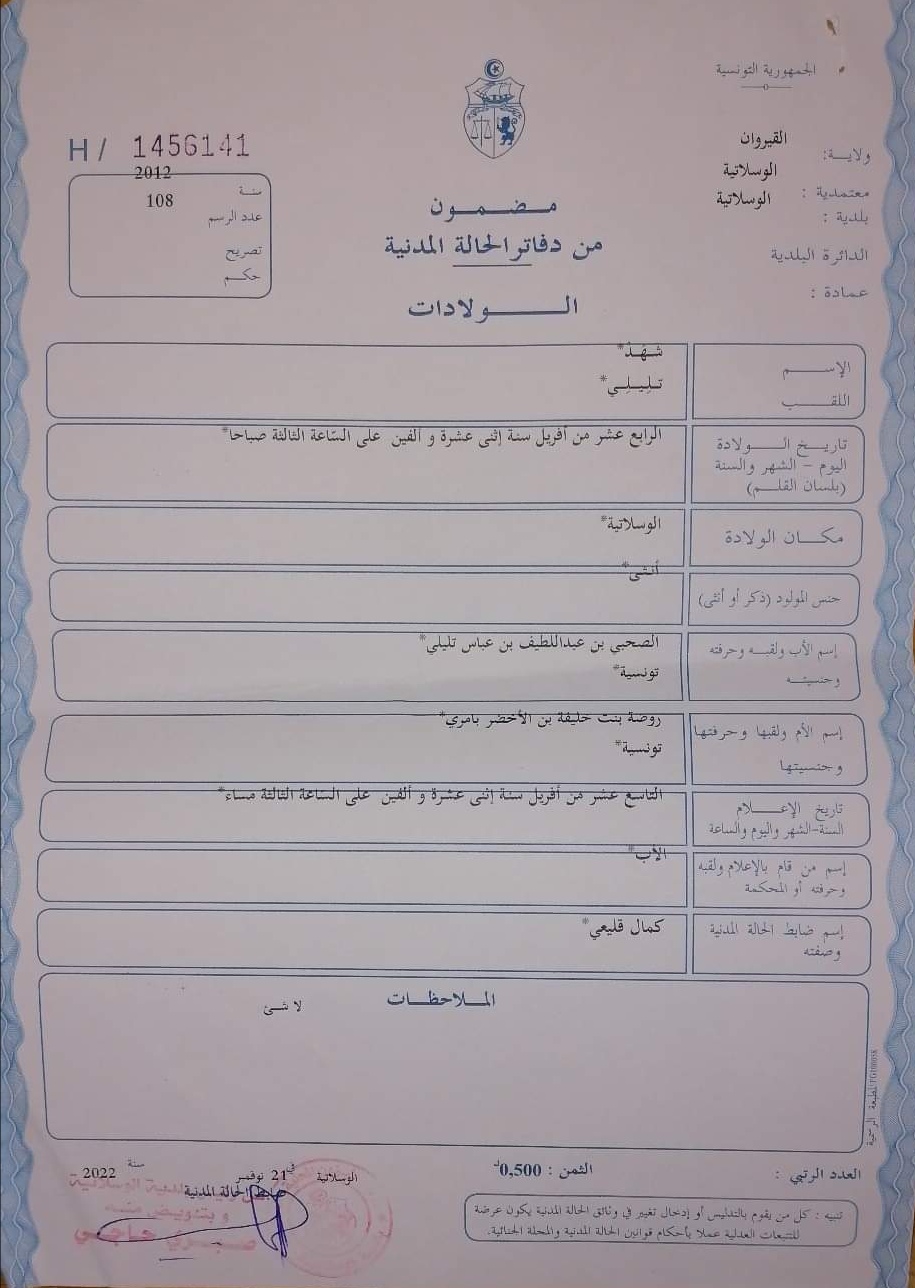 الجمهورية التونسية
H/ 1456141
ولاية: القيروان
معتمدية : الوسلاتية
بلدية : الوسلاتية
الدائرة البلدية
عمادة :
سنة 2012
عدد الرسم 108
تصريح
حكم
مضمون
من دفاتر الحالة المدنية
الولادات
الإسم شهد*
اللقب تليلي*
تاريخ الولادة
اليوم - الشهر والسنة
(بلسان القلم)
الرابع عشر من أفريل سنة إثنى عشرة و ألفين على السّاعة الثالثة صباحا*
مكان الولادة
الوسلاتية*
جنس المولود (ذكر أو أنثى)
أنثى*
إسم الأب ولقبه وحرفته
وجنسيته
الصحبي بن عبداللطيف بن عباس تليلي*
تونسية*
إسم الأم ولقبها وحرفتها
وجنسيتها
روضة بنت خليفة بن الأخضر بامري*
تونسية*
تاريخ الإعلام
السنة-الشهر واليوم والساعة
التاسع عشر من أفريل سنة إثنى عشرة و ألفين على السّاعة الثالثة مساء*
إسم من قام بالإعلام ولقبه
وحرفته أو المحكمة
الأب*
إسم ضابط الحالة المدنية
وصفته
كمال قليعي*
الملاحظات
لا شئ
العدد الرتبي :
الثمن : 0,500
الوسلاتية في 21 نوفمبر سنة 2022
ضابط الحالة المدنية
و بتفويض منه
صبري حاجي
تنبيه : كل من يقوم بالتدليس أو إدخال تغيير في وثائق الحالة المدنية يكون عرضة
للتتبعات العدلية عملا بأحكام قوانين الحالة المدنية والمجلة الجنائية.